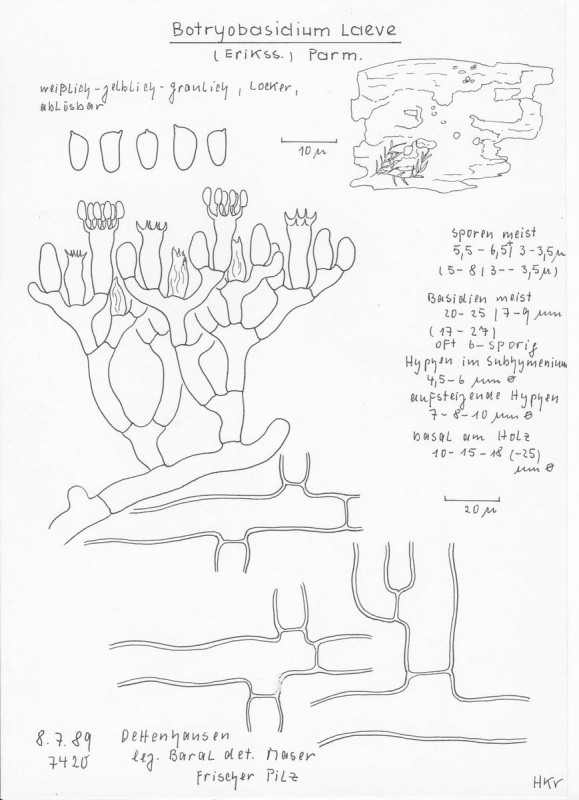 Botryobasidium Laeve
(Erikss.) Parm.
weißlich-gelblich-graulich, locker,
ablösbar
10 µ
Sporen meist
5,5 - 6,5 / 3 - 3,5 µ
(5 - 8 / 3 -- 3,5 µ)
Basidien meist
20 - 25 / 7 - 9 µm
(17 - 27)
oft 6-sporig
Hyphen im Subhymenium
4,5 - 6 µm ø
aufsteigende Hyphen
7 - 8 - 10 µm ø
basal am Holz
10 - 15 - 18 (-25)
µm ø
20 µ
8.7.89 Dettenhausen
7420 leg. Baral det. Maser
Frischer Pilz
HKr